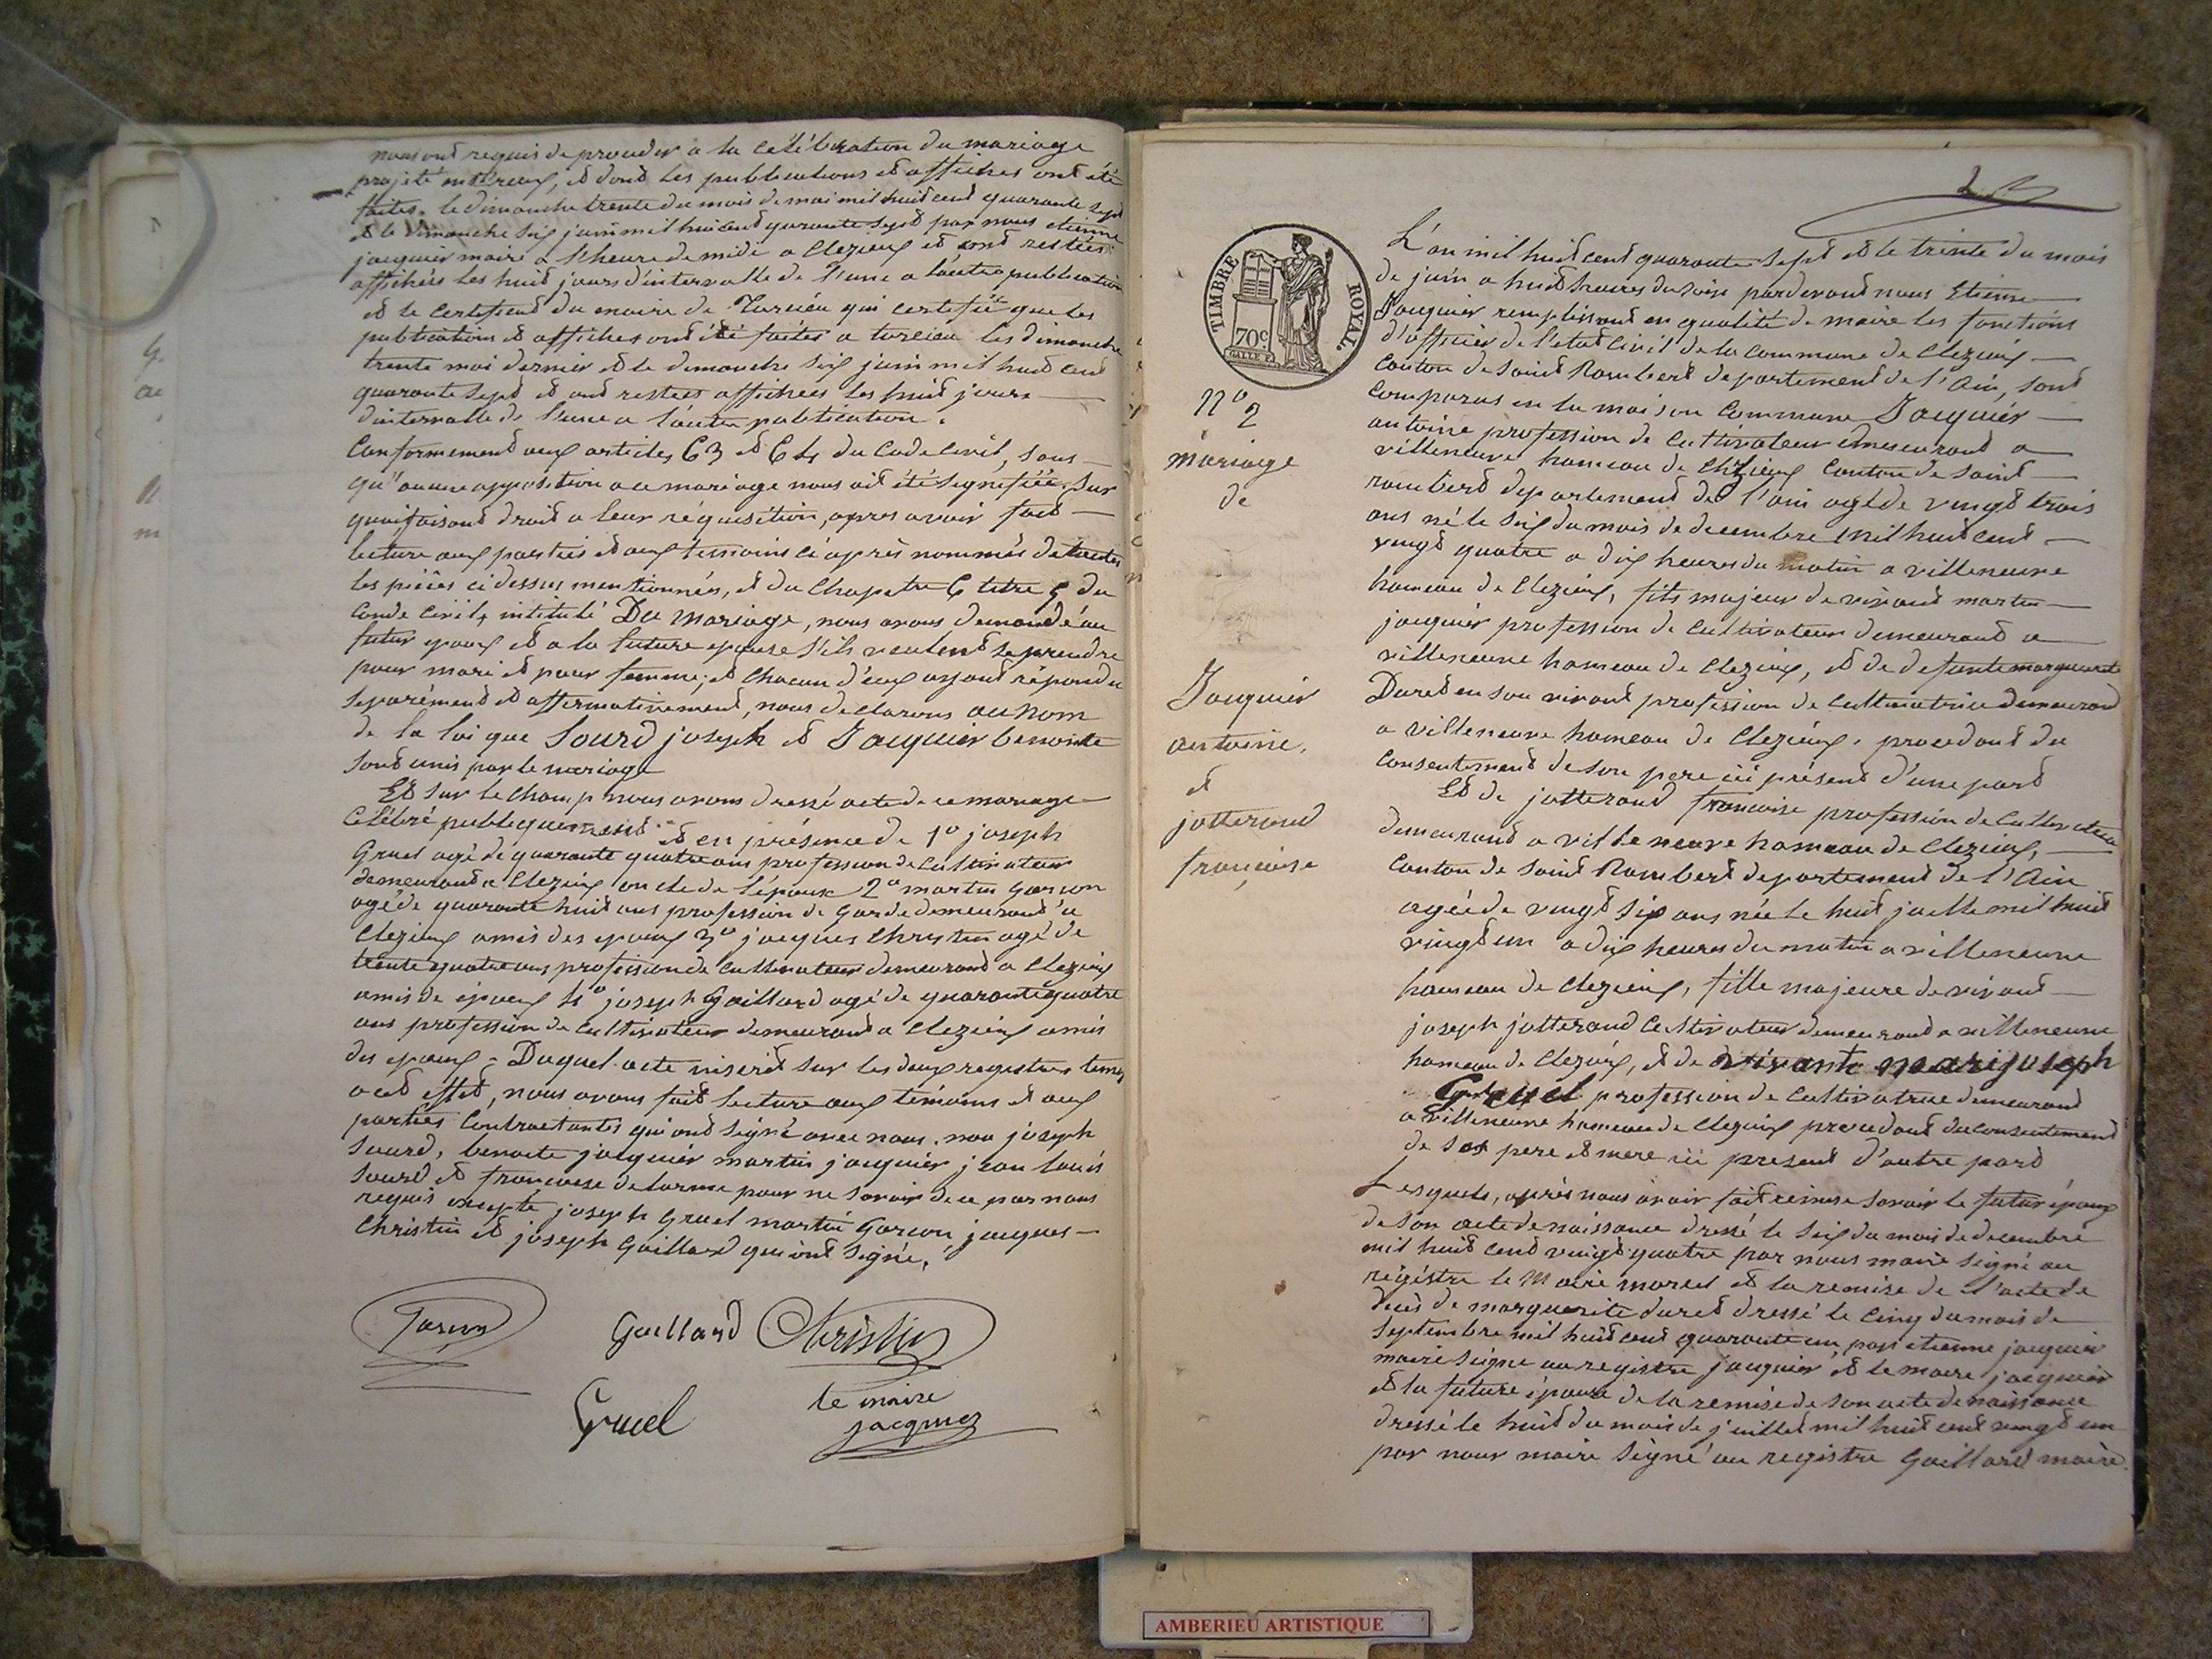 nous ont requis de proceder a la célébration du mariage
projeté entre eux, et dont les publications et affiches ont été
faites. le dimanche trente du mois de mai mil huit cent quarante sept
et le dimanche six juin mil huit cent quarante sept par nous etienne
jacquier maire a l'heure de midi a Clezieux et sont restées
affichées les huit jours d'intervalle de l'une a l'autre publication
et le certificat du maire de Turcieu qui certifié que les
publications et affiches ont été faites a turcieu les dimanche
trente mai dernier et le dimanche six juin mil huit cent
quarante sept et ont restees affichees les huit jours
d'intervalle de l'une a l'autre publication.
Conformement aux articles 63 et 64 du Code Civil, sans
qu'aucune opposition a ce mariage nous ait été signifiée. Sur
quoi faisant droit a leur réquisition, apres avoir fait
lecture aux parties et aux temoins ci après nommés de toutes
les pièces ci dessus mentionnés, et du Chapitre 6 titre 5 du
Conde Civil, intitulé Du Mariage, nous avons demandé au
futur epoux et a la future epouse s'ils veulent se prendre
pour mari et pour femme; et chacun d'eux ayant répondu
separément et affirmativement, nous declarons au nom
de la loi que Sourd joseph et Jacquier benoite
sont unis par le mariage
Et sur le champ nous avons dressé acte de ce mariage
Célébré publiquement et en présence de 1º joseph
Gruel agé de quarante quatre ans profession de Cultivateur
demeurant a Clezieux oncle de l'épouse 2º martin Garson
agé de quarante huit ans profession de Garde demeurant a
Clezieux amis des epoux 3º jacques Christin agé de
trente quatre ans profession de Cultivateur demeurant a Clezieux
amis de époux 4º joseph Gaillard agé de quarante quatre
ans profession de Cultivateur demeurant a Clezieux amis
des epoux - Duquel acte inscrit sur les deux registres tenus
a cet effet, nous avons fait lecture aux témoins et aux
parties Contractantes qui ont signé avec nous. non joseph
Sourd, benoite jacquier martin jacquier jean louis
Sourd et francoise delorme pour ne savoir de ce par nous
requis excepte joseph Gruel martin Garson jacques
Christin et joseph Gaillard qui ont signé.
Garson Gaillard Christin
Gruel le maire
jacquier
2
TIMBRE ROYAL.
70c
L'an mil huit cent quarante sept et le trente du mois
de juin a huit heures du soir pardevant nous Etienne
Jacquier remplissant en qualité de maire les fonctions
d'officier de l'état Civil de la Commune de Clezieux
Canton de Saint Rambert departement de l'Ain, sont
Comparus en la maison Commune Jacquier
antoine profession de Cultivateur demeurant a
villeneuve hameau de Clezieux Canton de Saint
rambert departement de l'ain agé de vingt trois
ans né le Six du mois de decembre mil huit cent
vingt quatre a dix heures du matin a villeneuve
hameau de Clezieux, fils majeur de vivant martin
jacquier profession de Cultivateur demeurant a
villeneuve hameau de Clezieux, et de defunte marguerite
Duret en son vivant profession de Cultivatrice demeurant
a villeneuve hameau de Clezieux. procedant du
Consentement de son pere ici présent d'une part
Et de jotterand francoise profession de Cultivatrice
demeurant a villeneuve hameau de Clezieux,
Canton de Saint Rambert departement de l'Ain
agée de vingt six ans née le huit juillet mil huit
vingt un a dix heures du matin a villeneuve
hameau de Clezieux, fille majeure de vivant
joseph jotterand Cultivateur demeurant a villeneuve
hameau de Clezieux, et de vivante marijoseph
Gruel profession de Cultivatrice demeurant
a villeneuve hameau de Clezieux procedant du consentement
de ses pere et mere ici present d'autre part
Lesquels, après nous avoir fait remise savoir le futur époux
de son acte de naissance dressé le Six du mois de decembre
mil huit cent vingt quatre par nous maire signé au
régistre le Maire et la remise de l'acte de
decès de marguerite duret dressé le Cinq du mois de
septembre mil huit cent quarante un, par etienne jacquier
maire signe au registre jacquier et le maire jacquier
et la future épouse de la remise de son acte de naissance
dressé le huit du mois de juillet mil huit cent vingt un
par nous maire signé au registre Gaillard maire.
Nº 2
mariage
de
Jacquier
antoine.
et
jotterand
françoise
AMBERIEU ARTISTIQUE